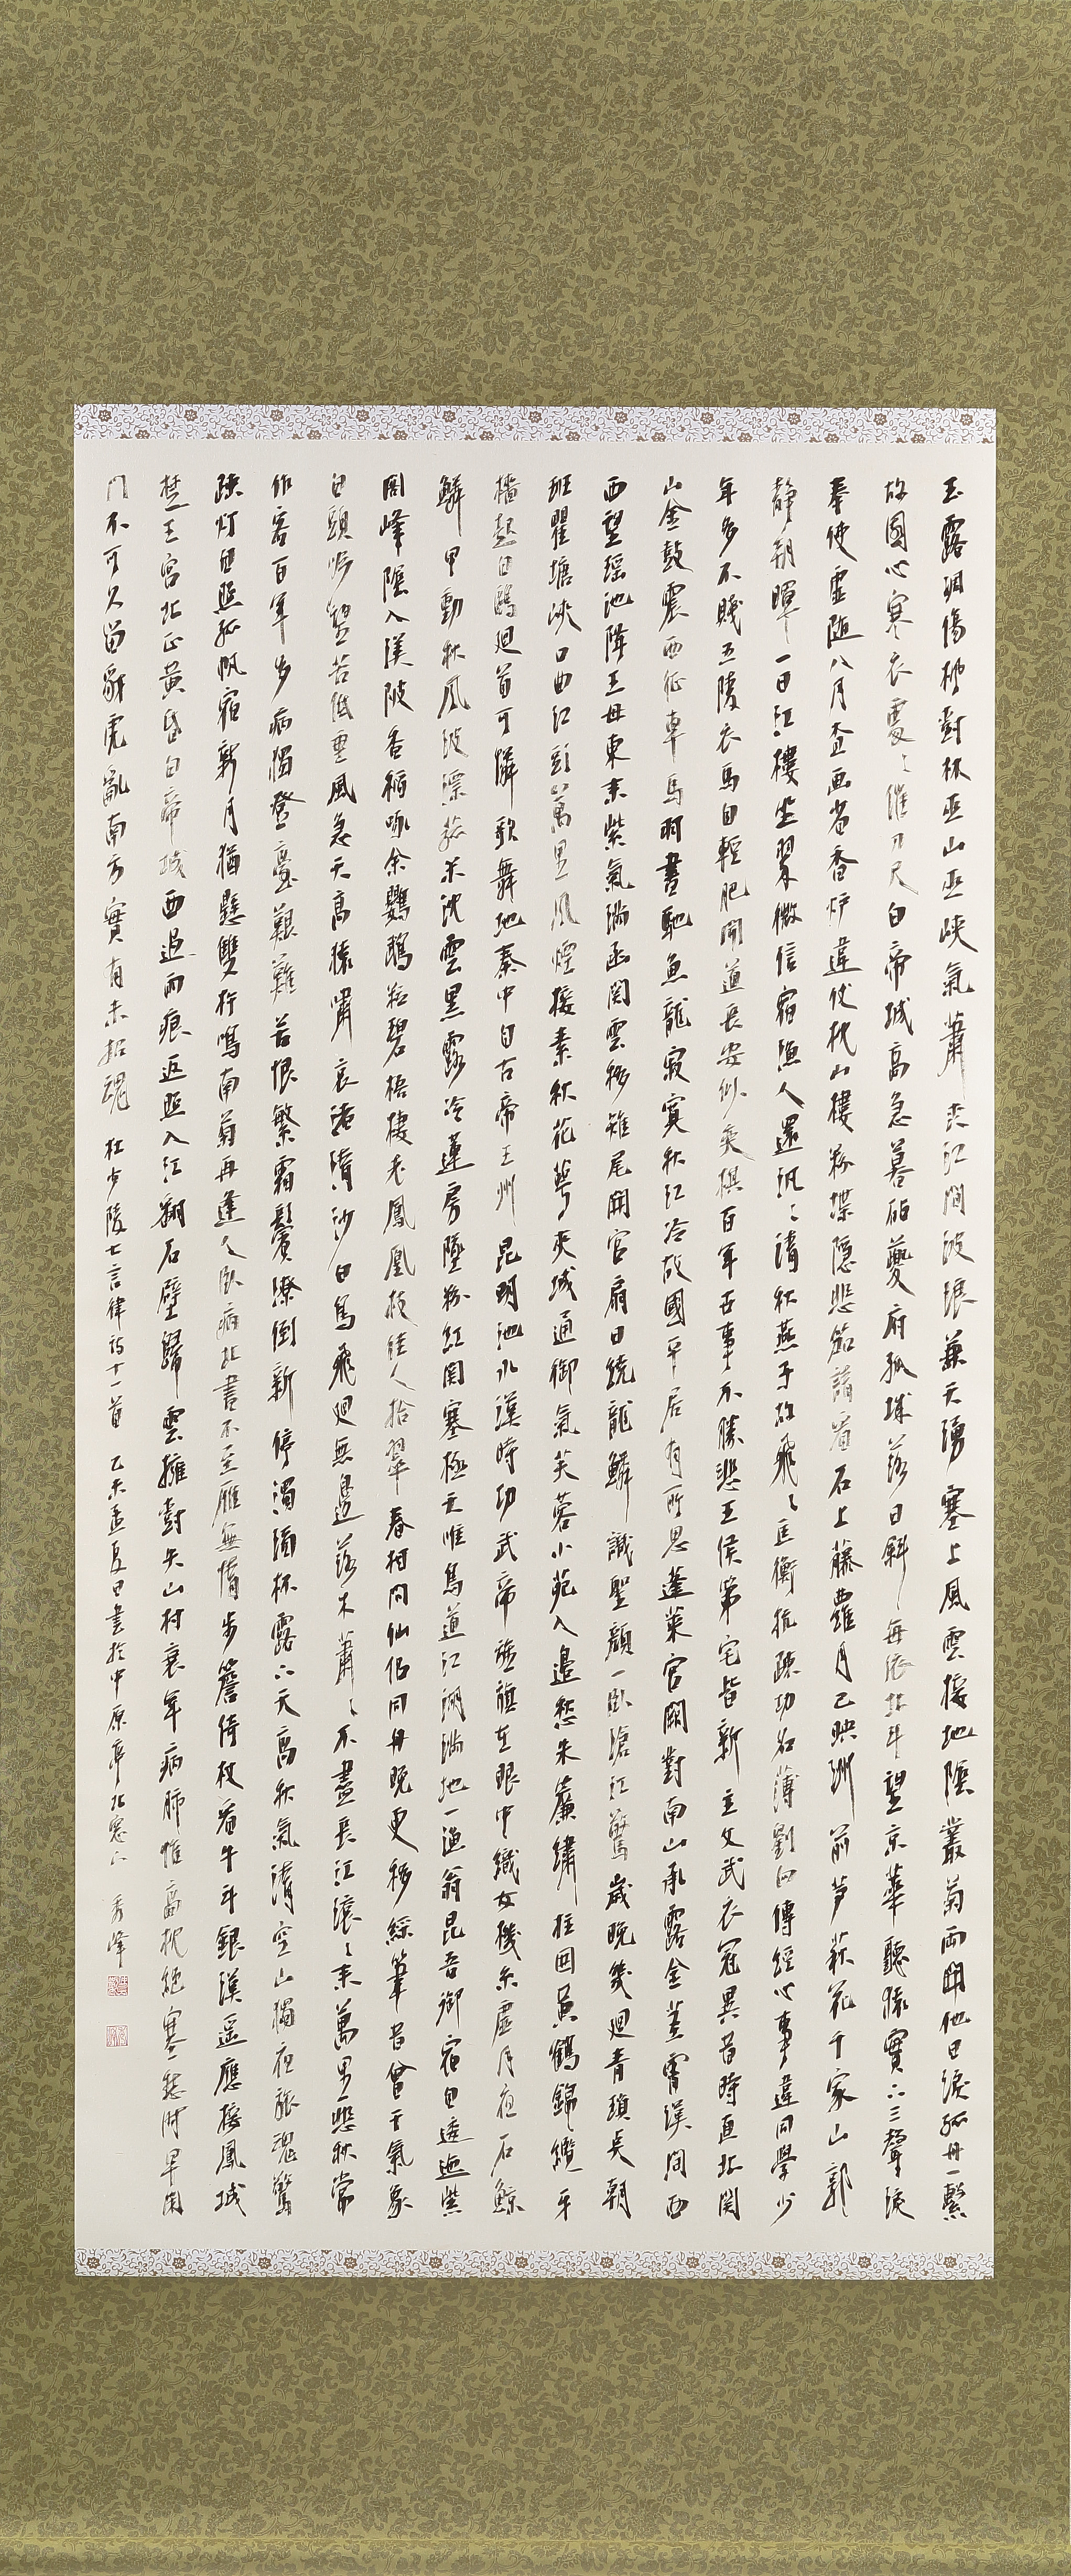 玉露凋傷楓樹林巫山巫峽氣蕭森江間波浪兼天湧塞上風雲接地陰叢菊兩開他日淚孤舟一繫
故園心寒衣處〻催刀尺白帝城高急暮砧夔府孤城落日斜每依北斗望京華聽猿實下三聲淚
奉使虛随八月查画省香炉違伏枕山樓粉堞隱悲笳請看石上藤蘿月已映洲前芦荻花千家山郭
静朝暉一日江樓坐翠微信宿漁人還汎〻清秋燕子故飛〻匡衡抗疏功名薄劉向傳經心事違同學少
年多不賤五陵衣馬自輕肥聞道長安似奕棋百年世事不勝悲王侯第宅皆新主文武衣冠異昔時直北関
山金鼓震西征車馬羽書馳魚龍寂寞秋江冷故國平居有所思蓬萊宮闕對南山承露金莖霄漢間西
西望瑶池降王母東來紫氣滿函関雲移雉尾開宮扇日繞龍鱗識聖顏一臥滄江驚歲晚幾廻青瑣点朝
班瞿塘峽口曲江頭萬里風煙接素秋花萼夾城通御氣芙蓉小苑入邊愁朱簾繡柱囲黃鶴錦纜牙
檣起白鷗廻首可憐歌舞地秦中自古帝王州昆明池水漢時功武帝旌旗在眼中織女機糸虛月夜石鯨
鱗甲動秋風波漂菰米沈雲黒露冷蓮房墜粉紅関塞極天惟鳥道江湖滿地一漁翁昆吾御宿自逶迤紫
閣峰陰入渼陂香稻啄余鸚鵡粒碧梧棲老鳳凰枝佳人拾翠春相問仙侶同舟晚更移綵筆昔曾干氣象
白頭吟望苦低垂風急天高猿嘯哀渚清沙白鳥飛廻無邊落木蕭〻不盡長江滾〻来萬里悲秋常
作客百年多病獨登臺艱難苦恨繁霜鬢潦倒新停濁酒杯露下天高秋氣清空山獨夜旅魂驚
疎灯自照孤帆宿新月猶懸雙杵鳴南菊再逢人臥病北書不至雁無情步簷倚杖看牛斗銀漢遥應接鳳城
楚王宮北正黃昏白帝城西過雨痕返照入江翻石壁歸雲擁樹失山村衰年病肺惟高枕絕塞愁時早閉
門不可久留豺虎亂南方實有未招魂 杜少陵七言律詩十一首 乙未孟夏日書於中原亭北窓下 秀峰